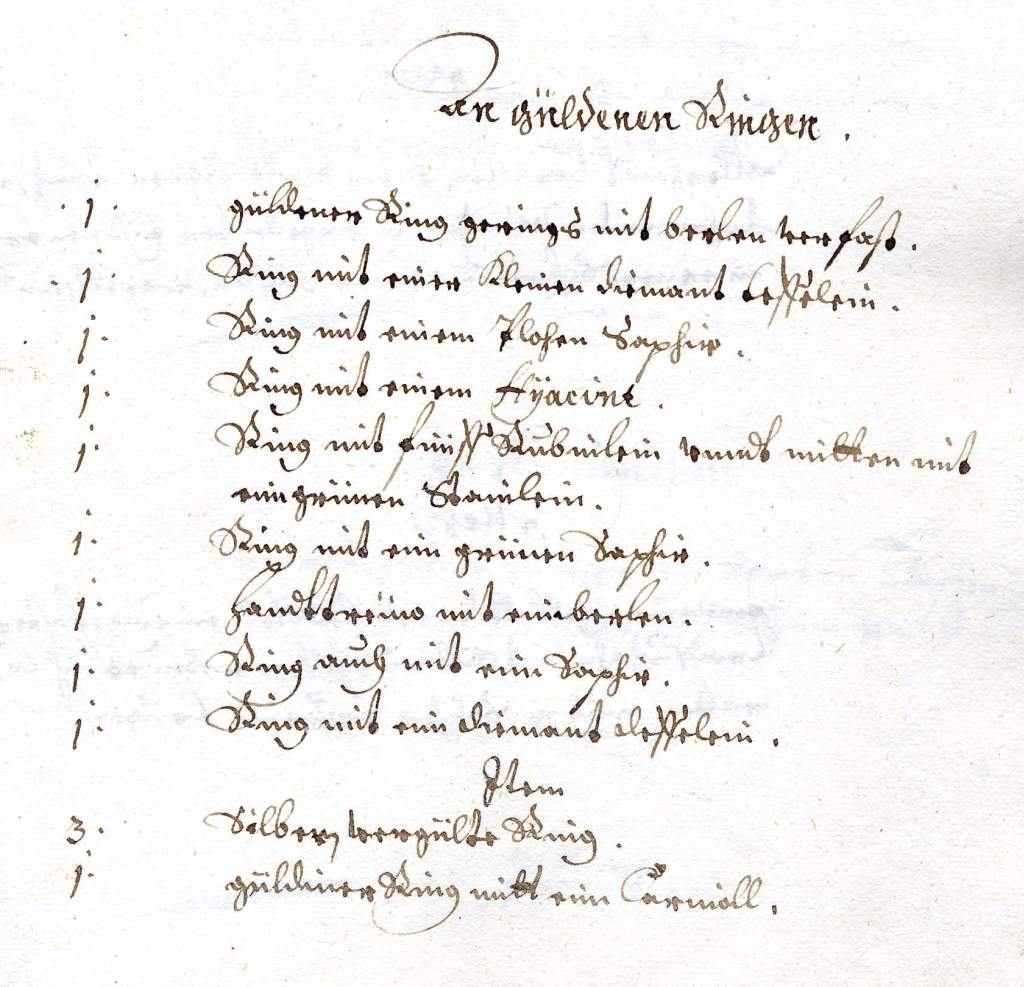 An güldenen Ringen.
1. güldener Ring gerings mit berlen verfast.
1. Ring mit einer kleinen diemant teffelein.
1. Ring mit einem Plohen Saphir.
1. Ring mit einem Hÿacint.
1. Ring mit fünff Rubinlein vnndt mitten mit
ein grünen Stainlein.
1. Ring mit ein grünen Saphir.
1. handttreüw mit ein berlen.
1. Ring auch mit ein Saphir.
1. Ring mit ein diemant deffelein.
Item
3. Silbern vergülte Ring.
1. güldiner Ring mitt ein Carnioll.